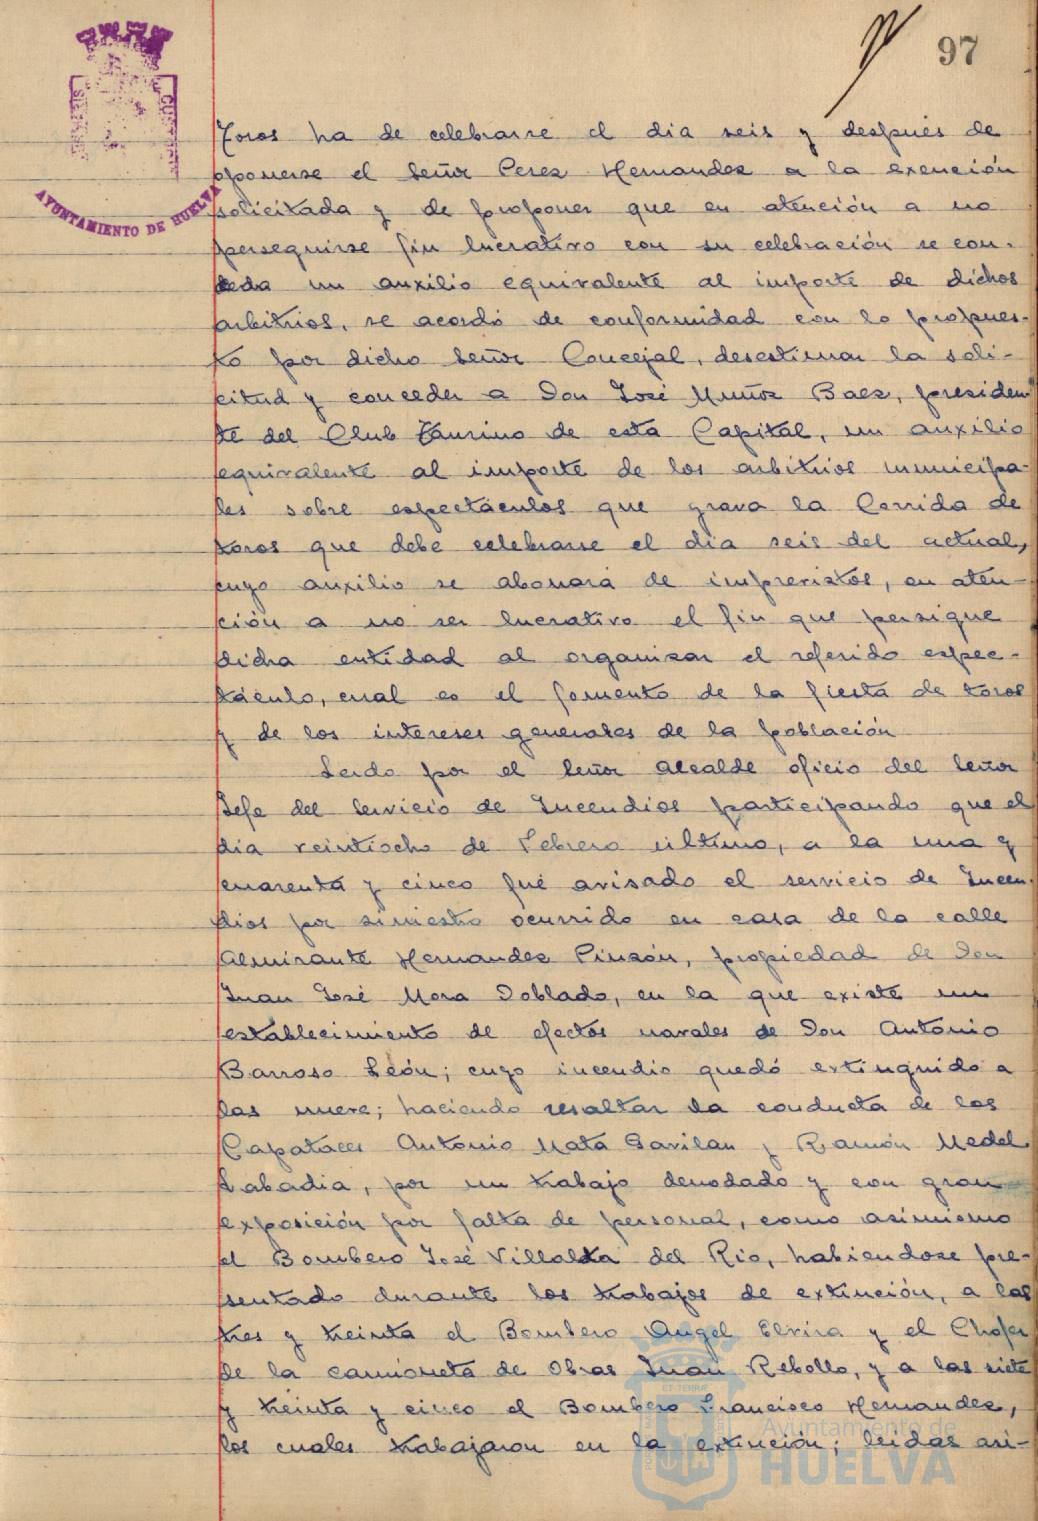 97
AYUNTAMIENTO DE HUELVA
Toros ha de celebrarse el dia seis y después de
oponerse el Señor Perez Hernandez a la exención
solicitada y de proponer que en atención a no
perseguirse fin lucrativo con su celebración se con-
ceda un auxilio equivalente al importe de dichos
arbitrios, se acordó de conformidad con lo propues-
to por dicho Señor Concejal, desestimar la soli-
citud y conceder a Don José Muñoz Baez, presiden-
te del Club Taurino de esta Capital, un auxilio
equivalente al importe de los arbitrios municipa-
les sobre espectáculos que grava la Corrida de
toros que debe celebrarse el dia seis del actual,
cuyo auxilio se abonará de imprevistos, en aten-
ción a no ser lucrativo el fin que persigue
dicha entidad al organizar el referido espec-
táculo, cual es el fomento de la fiesta de toros
y de los intereses generales de la población
Leido por el Señor Alcalde oficio del Señor
Jefe del Servicio de Incendios participando que el
dia veintiocho de Febrero último, a la una y
cuarenta y cinco fué avisado el servicio de Incen-
dios por siniestro ocurrido en casa de la calle
Almirante Hernandez Pinzón, propiedad de Don
Juan José Mora Doblado, en la que existe un
establecimiento de efectos navales de Don Antonio
Barroso León; cuyo incendio quedó extinguido a
las nueve; haciendo resaltar la conducta de los
Capataces Antonio Mata Gavilan y Ramón Medel
Labadia, por un trabajo denodado y con gran
exposición por falta de personal, como asimismo
el Bombero José Villalta del Rio, habiendose pre-
sentado durante los trabajos de extinción, a las
tres y treinta el Bombero Angel Elvira y el Chofer
de la camioneta de Obras Juan Rebollo, y a las siete
y treinta y cinco el Bombero Francisco Hernandez,
los cuales trabajaron en la extinción; leidas asi-
Ayuntamiento de
HUELVA